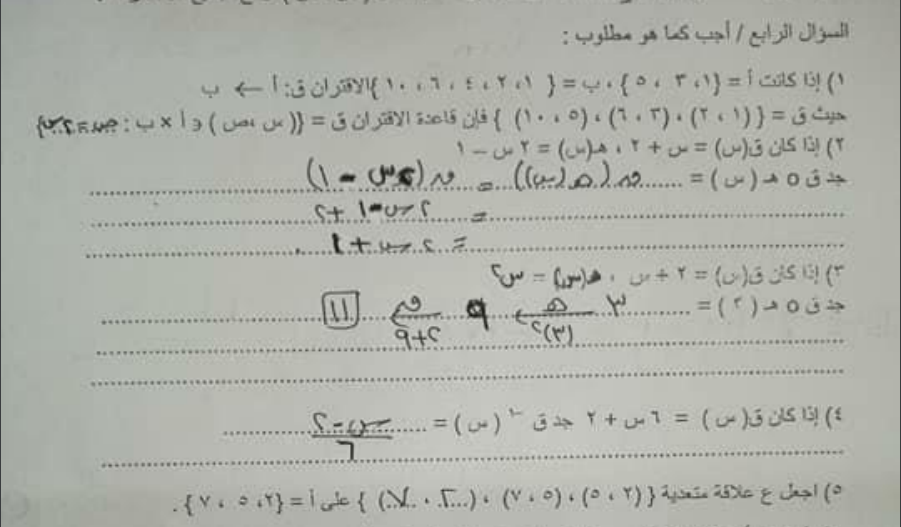 السؤال الرابع / أجب كما هو مطلوب :
١) إذا كانت أ = {١، ٣، ٥}، ب = { ١، ٢، ٤، ٦، ١٠ }الاقتران ق: أ ← ب
حيث ق = { (١، ٢)، (٣، ٦)، (٥، ١٠) } فإن قاعدة الاقتران ق = {(س، ص) ∈ أ × ب : ص = ٢س}
٢) إذا كان ق(س) = س + ٢ ، هـ(س) = ٢ س – ١
جد ق ٥ هـ (س) = ...... ق(هـ(س)) = ق(٢س - ١)
= ٢س - ١ + ٢
= ٢س + ١
٣) إذا كان ق(س) = ٢ + س ، هـ(س) = س٢
جد ق ٥ هـ (٣) = ...... ٣ هـ ← (٣)٢ ٩ ق ← ٢+٩ ١١
٤) إذا كان ق(س) = ٦س + ٢ جد ق⁻¹ (س) = ...... س - ٢ / ٦
٥) اجعل ع علاقة متعدية { (٢، ٥)، (٥، ٧)، (٢، ٧) } على أ = {٢، ٥، ٧}.